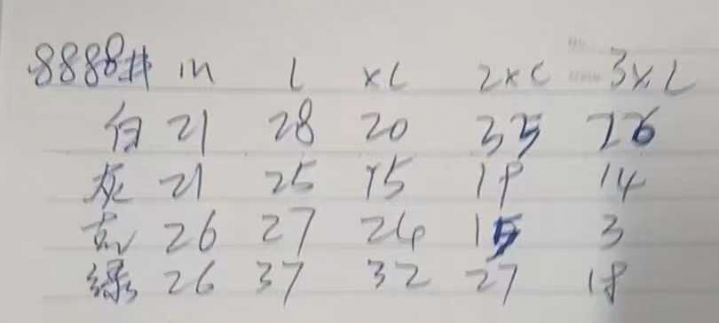 8888# m L XL 2XL 3XL
白 21 28 20 35 26
灰 21 25 15 18 14
26 27 24 15 3
绿 26 37 32 27 18